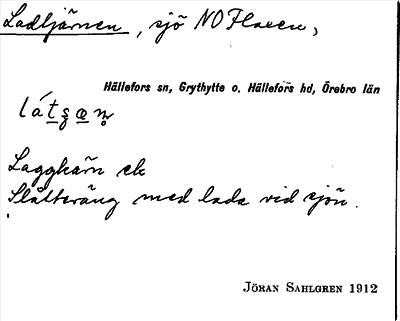 Ladtjärnen, sjö NO Flaxen,
Hällefors sn, Grythytte o. Hällefors hd, Örebro län
Slåtteräng med lada vid sjön.
JÖRAN SAHLGREN 1912